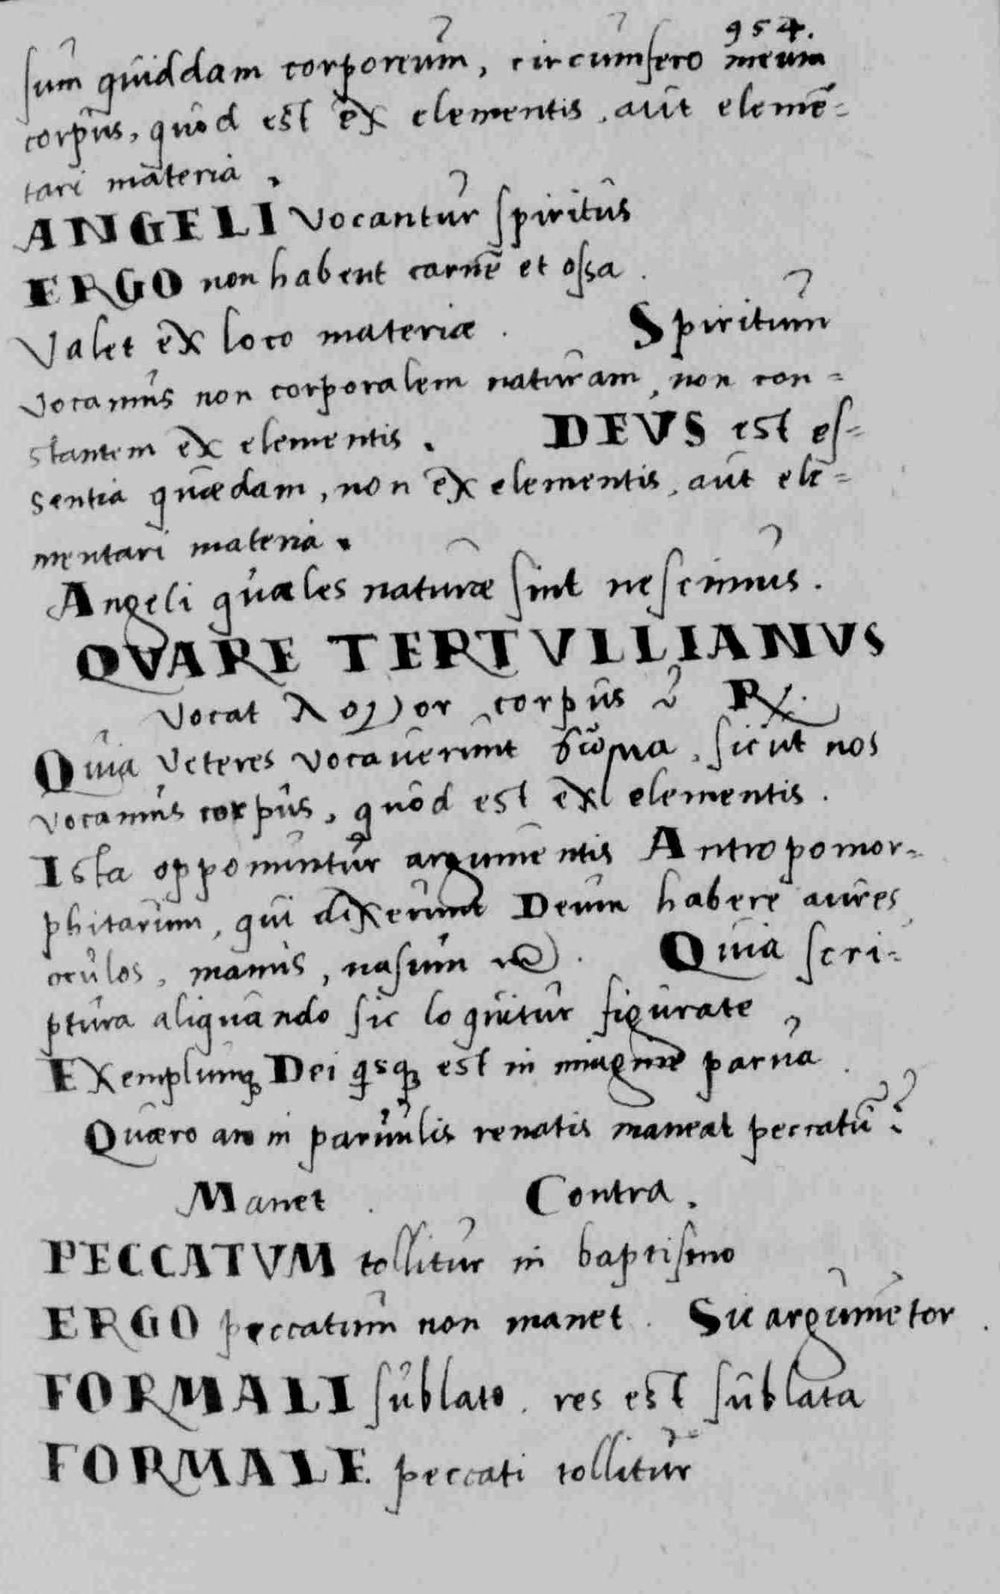 954.
sum quiddam corporeum, circumfero meum
corpus, quod est ex elementis, aut elemē-
tari materia.
ANGELI vocantur spiritus
ERGO non habent carnē et ossa.
Valet ex loco materiæ. Spiritum
vocamus non corporalem naturam, non con-
stantem ex elementis. DEVS est es-
sentia quædam, non ex elementis, aut ele-
mentari materia.
Angeli quales naturæ sint nescimus.
QVARE TERTVLLIANVS
vocat λογον corpus? R.
Quia veteres vocaverunt σῶμα, sicut nos
vocamus corpus, quod est ex elementis.
Ista opponuntur argumentis Antropomor-
phitarum, qui dixerunt Deum habere aures
oculos, manus, nasum &c. Quia scri-
ptura aliquando sic loquitur figurate
Exemplumq; Dei qsq; est in imagine parva.
Quæro an in parvulis renatis maneat peccatū?
Manet. Contra.
PECCATVM tollitur in baptismo
ERGO peccatum non manet. Sic argumētor.
FORMALI sublato, res est sublata
FORMALE peccati tollitur